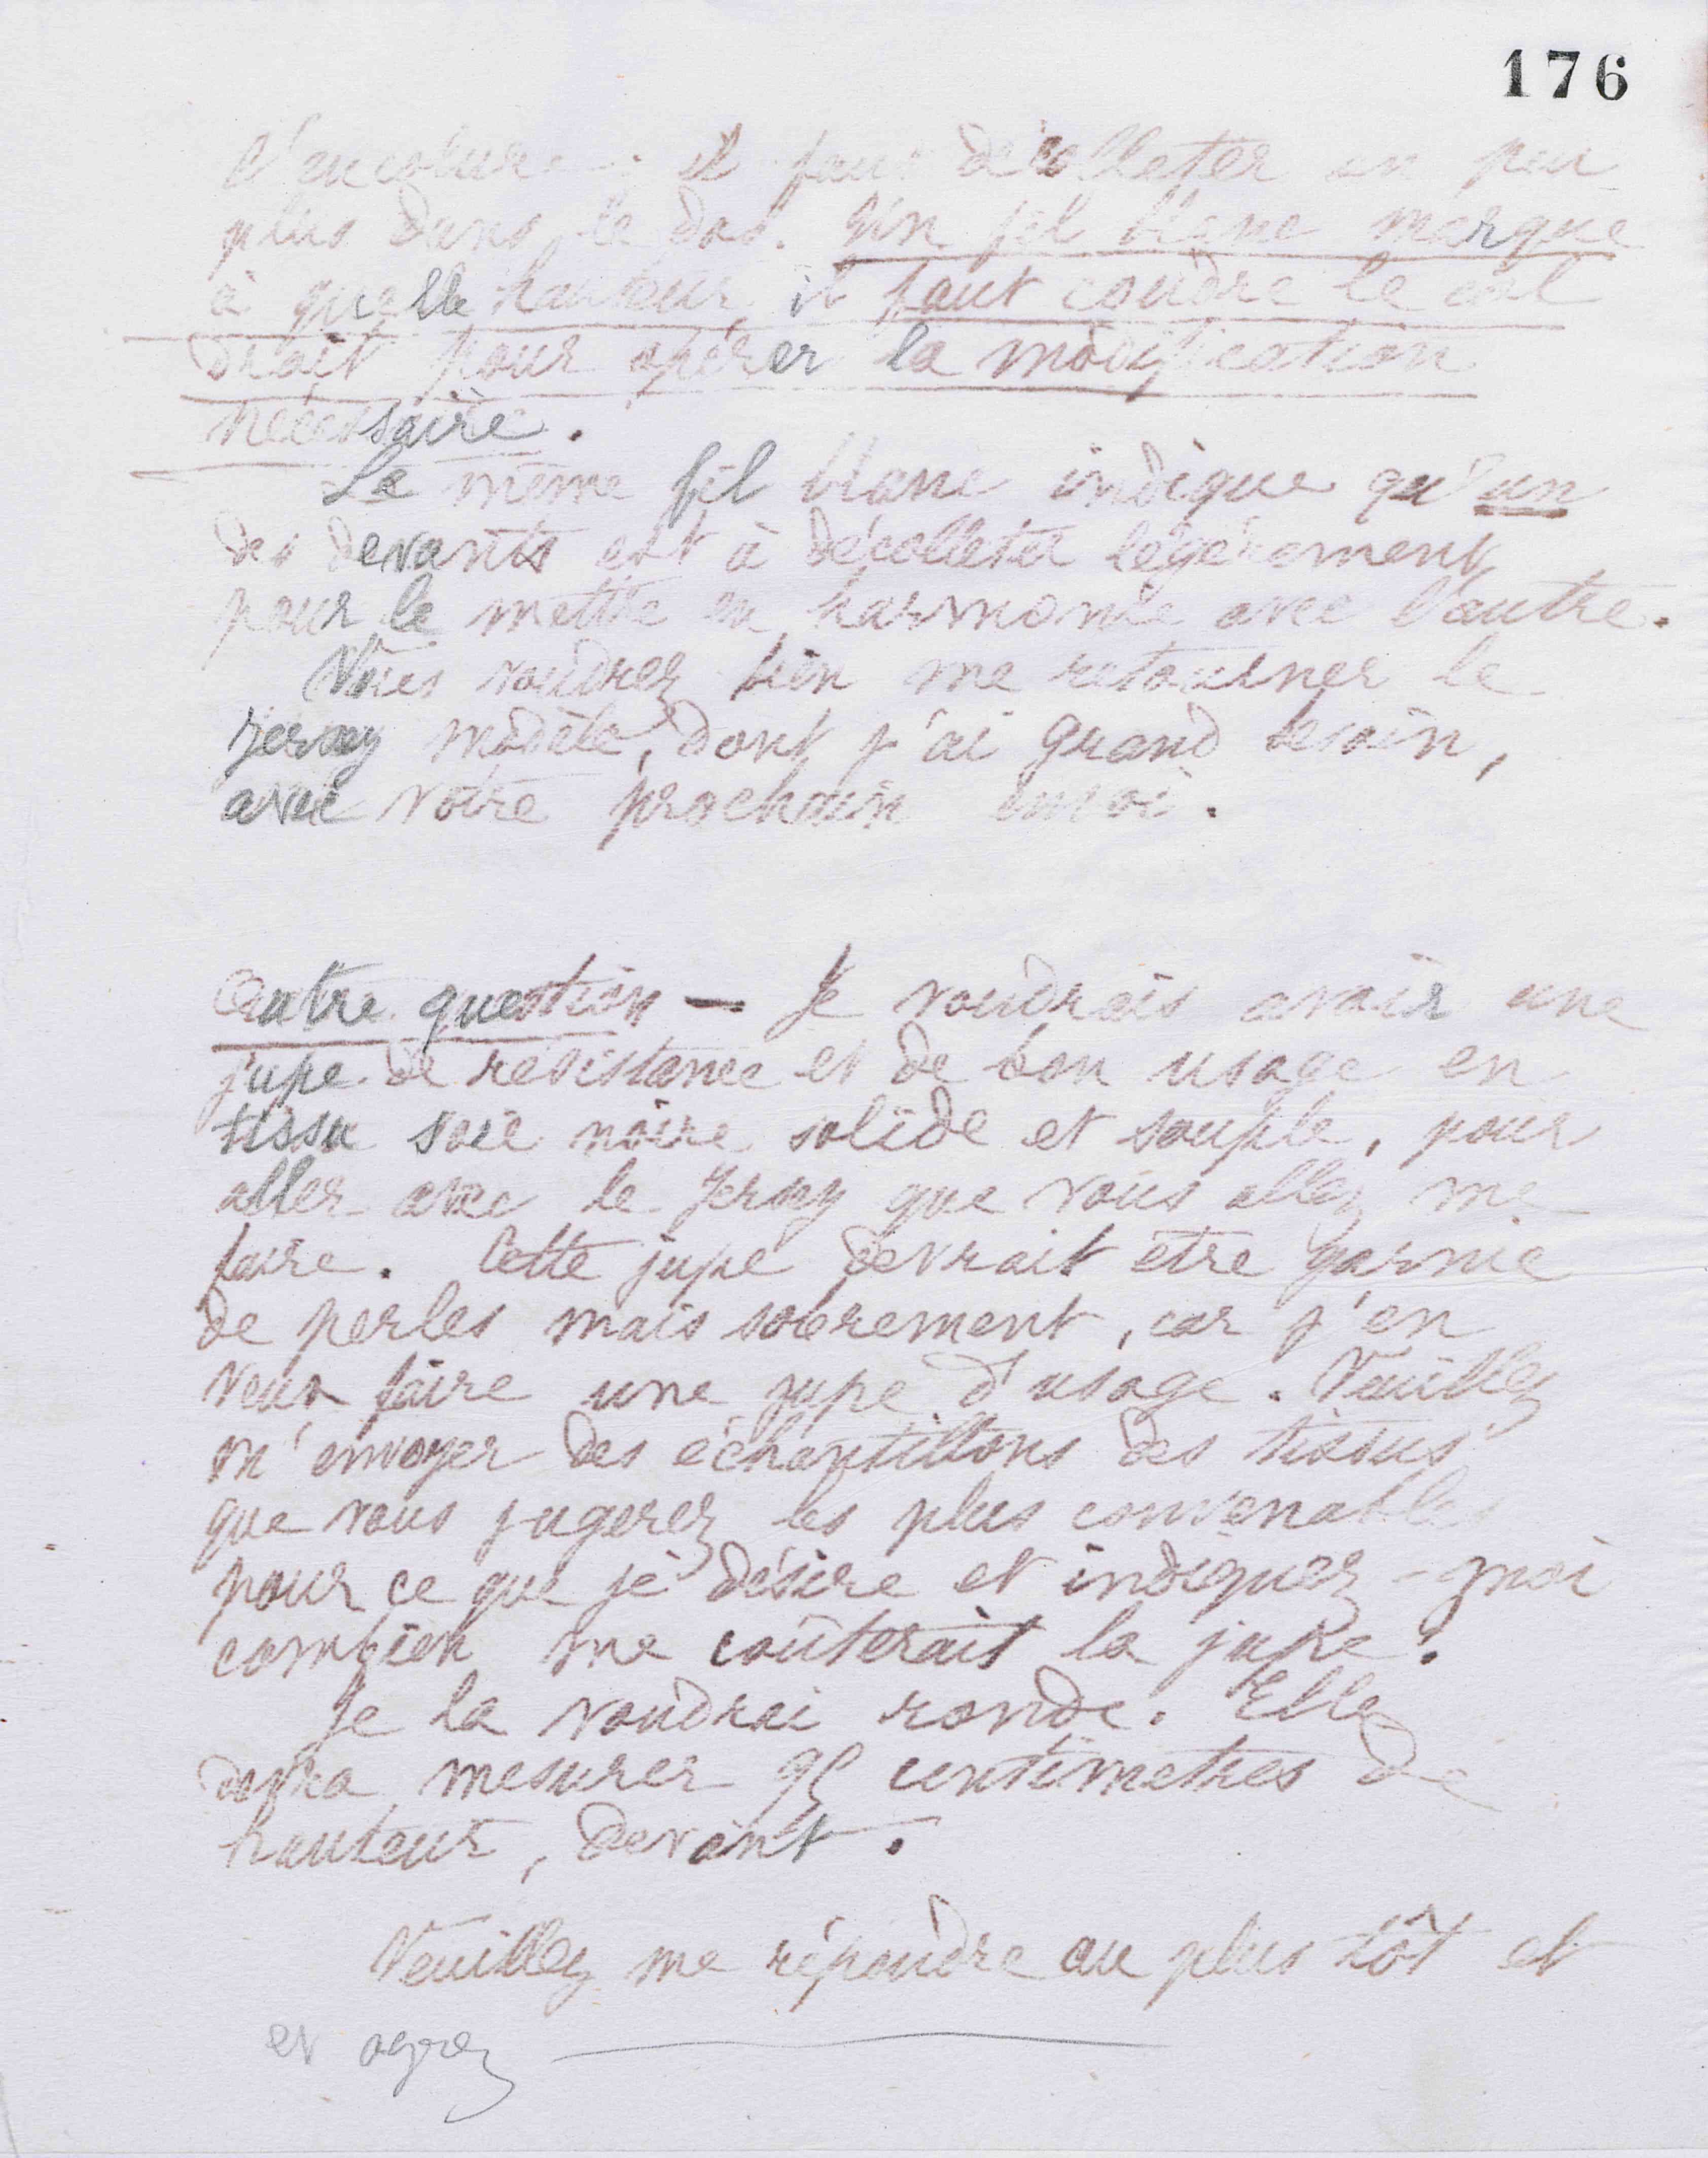 176
l'encolure : il faut décolleter un peu
plus dans le dos. Un fil blanc marque
à quelle hauteur il faut coudre le col
droit pour opérer la modification
nécessaire.
Le même fil blanc indique qu'un
des devants est à décolleter légèrement
pour le mettre en harmonie avec l'autre.
Vous voudrez bien me retourner le
jersey modèle, dont j'ai grand besoin,
avec votre prochain envoi.
Autre question — Je voudrais avoir une
jupe de résistance et de bon usage en
tissu soie noire solide et souple, pour
aller avec le jersey que vous allez me
faire. Cette jupe devrait etre garnie
de perles mais sobrement, car j'en
veux faire une jupe d'usage. Veuillez
m'envoyer des échantillons des tissus
que vous jugerez les plus convenables
pour ce que je désire et indiquez-moi
combien me coûterait la jupe.
Je la voudrai ronde. Elle
devra mesurer 95 centimetres de
hauteur, devant.
Veuillez me répondre au plus tôt et
et agréez